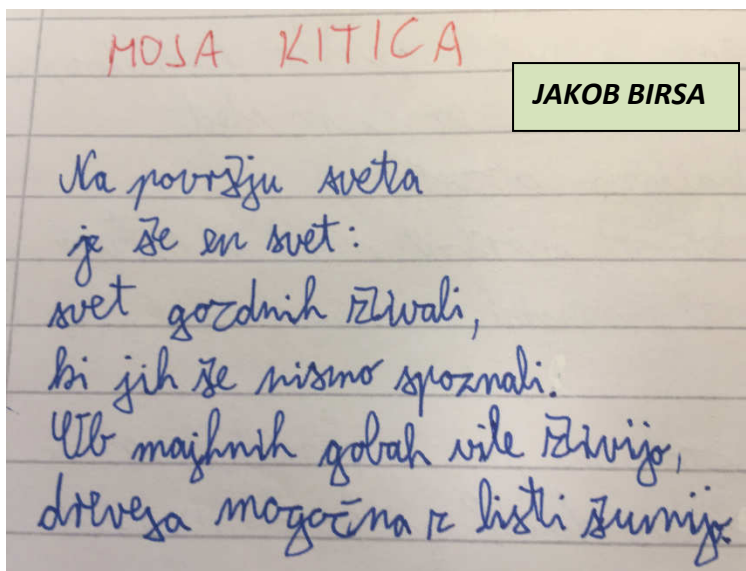 MOJA KITICA
JAKOB BIRSA
Na površju sveta
je še en svet:
svet gozdnih živali,
ki jih še nismo spoznali.
Ob majhnih gobah vile živijo,
drevesa mogočna z listi šumijo.